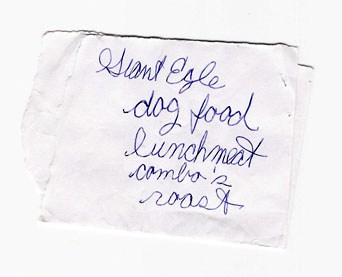 Giant Egle
dog food
lunchmeat
combo's
roast